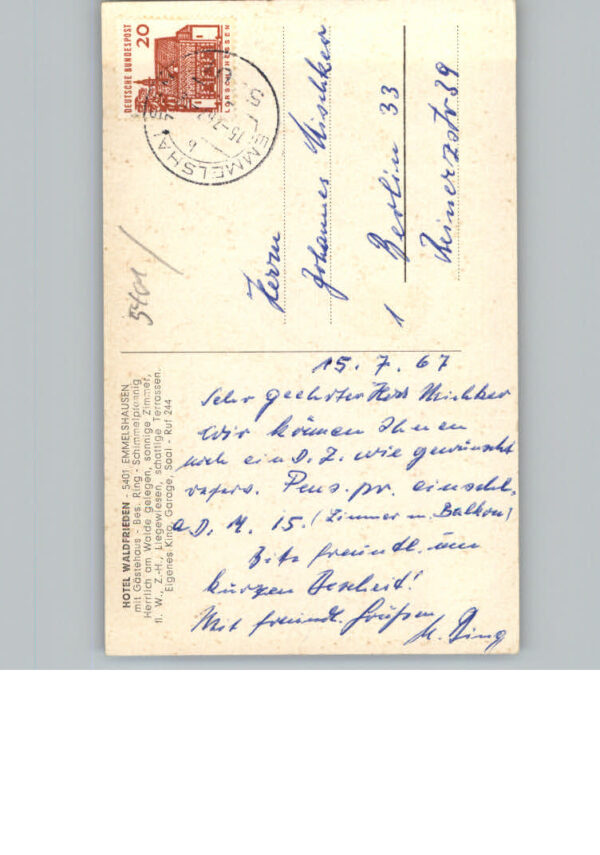 DEUTSCHE BUNDESPOST
20
LORSCH/HESSEN
EMMELSHA
5401
Herrn
Johannes Mischker
1 Berlin 33
Reinerzstr 39
HOTEL WALDFRIEDEN - 5401 EMMELSHAUSEN
mit Gästehaus - Bes. Ring - Schimmelpfennig
Herrlich am Walde gelegen, sonnige Zimmer,
fl. W., Z.-H., Liegewiesen, schattige Terrassen.
Eigenes Kino, Garage, Saal - Ruf 244
15.7.67
Sehr geehrter Herr Mischker
Wir können Ihnen
noch ein D.Z. wie gewünscht
reserv. Pens. pr. einschl.
D.M. 15. (Zimmer m. Balkon)
Bitte freundl. um
kurzen Bescheit!
Mit freundl. Grüßen
M. Ring